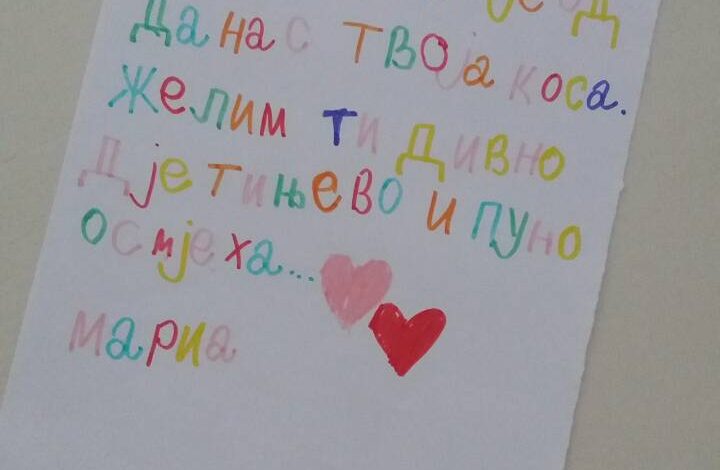 Данас твоја коса.
Желим ти дивно
Дјетињево и пуно
осмјеха...
Мариа